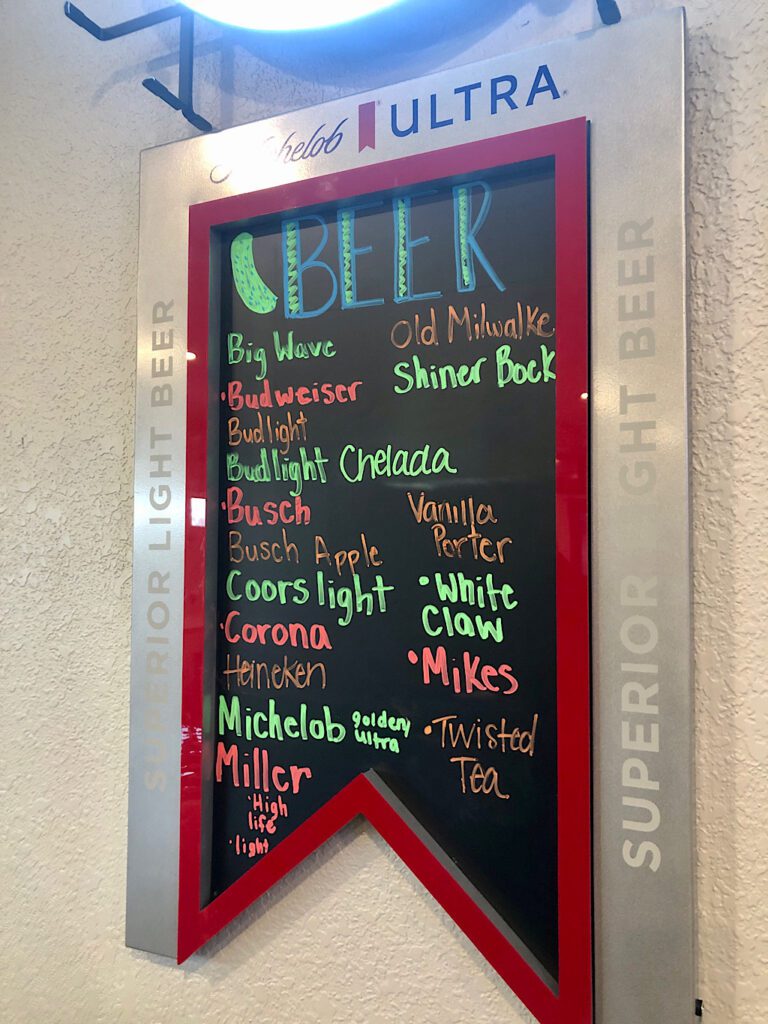 Michelob ULTRA
BEER
Big Wave
·Budweiser
Budlight
Budlight Chelada
·Busch
Busch Apple
Coors light
·Corona
Heineken
Michelob golden/ ultra
Miller
·High
life
·light
Old Milwalke
Shiner Bock
Vanilla
Porter
·White
Claw
·Mikes
·Twisted
Tea
SUPERIOR LIGHT BEER
SUPERIOR LIGHT BEER